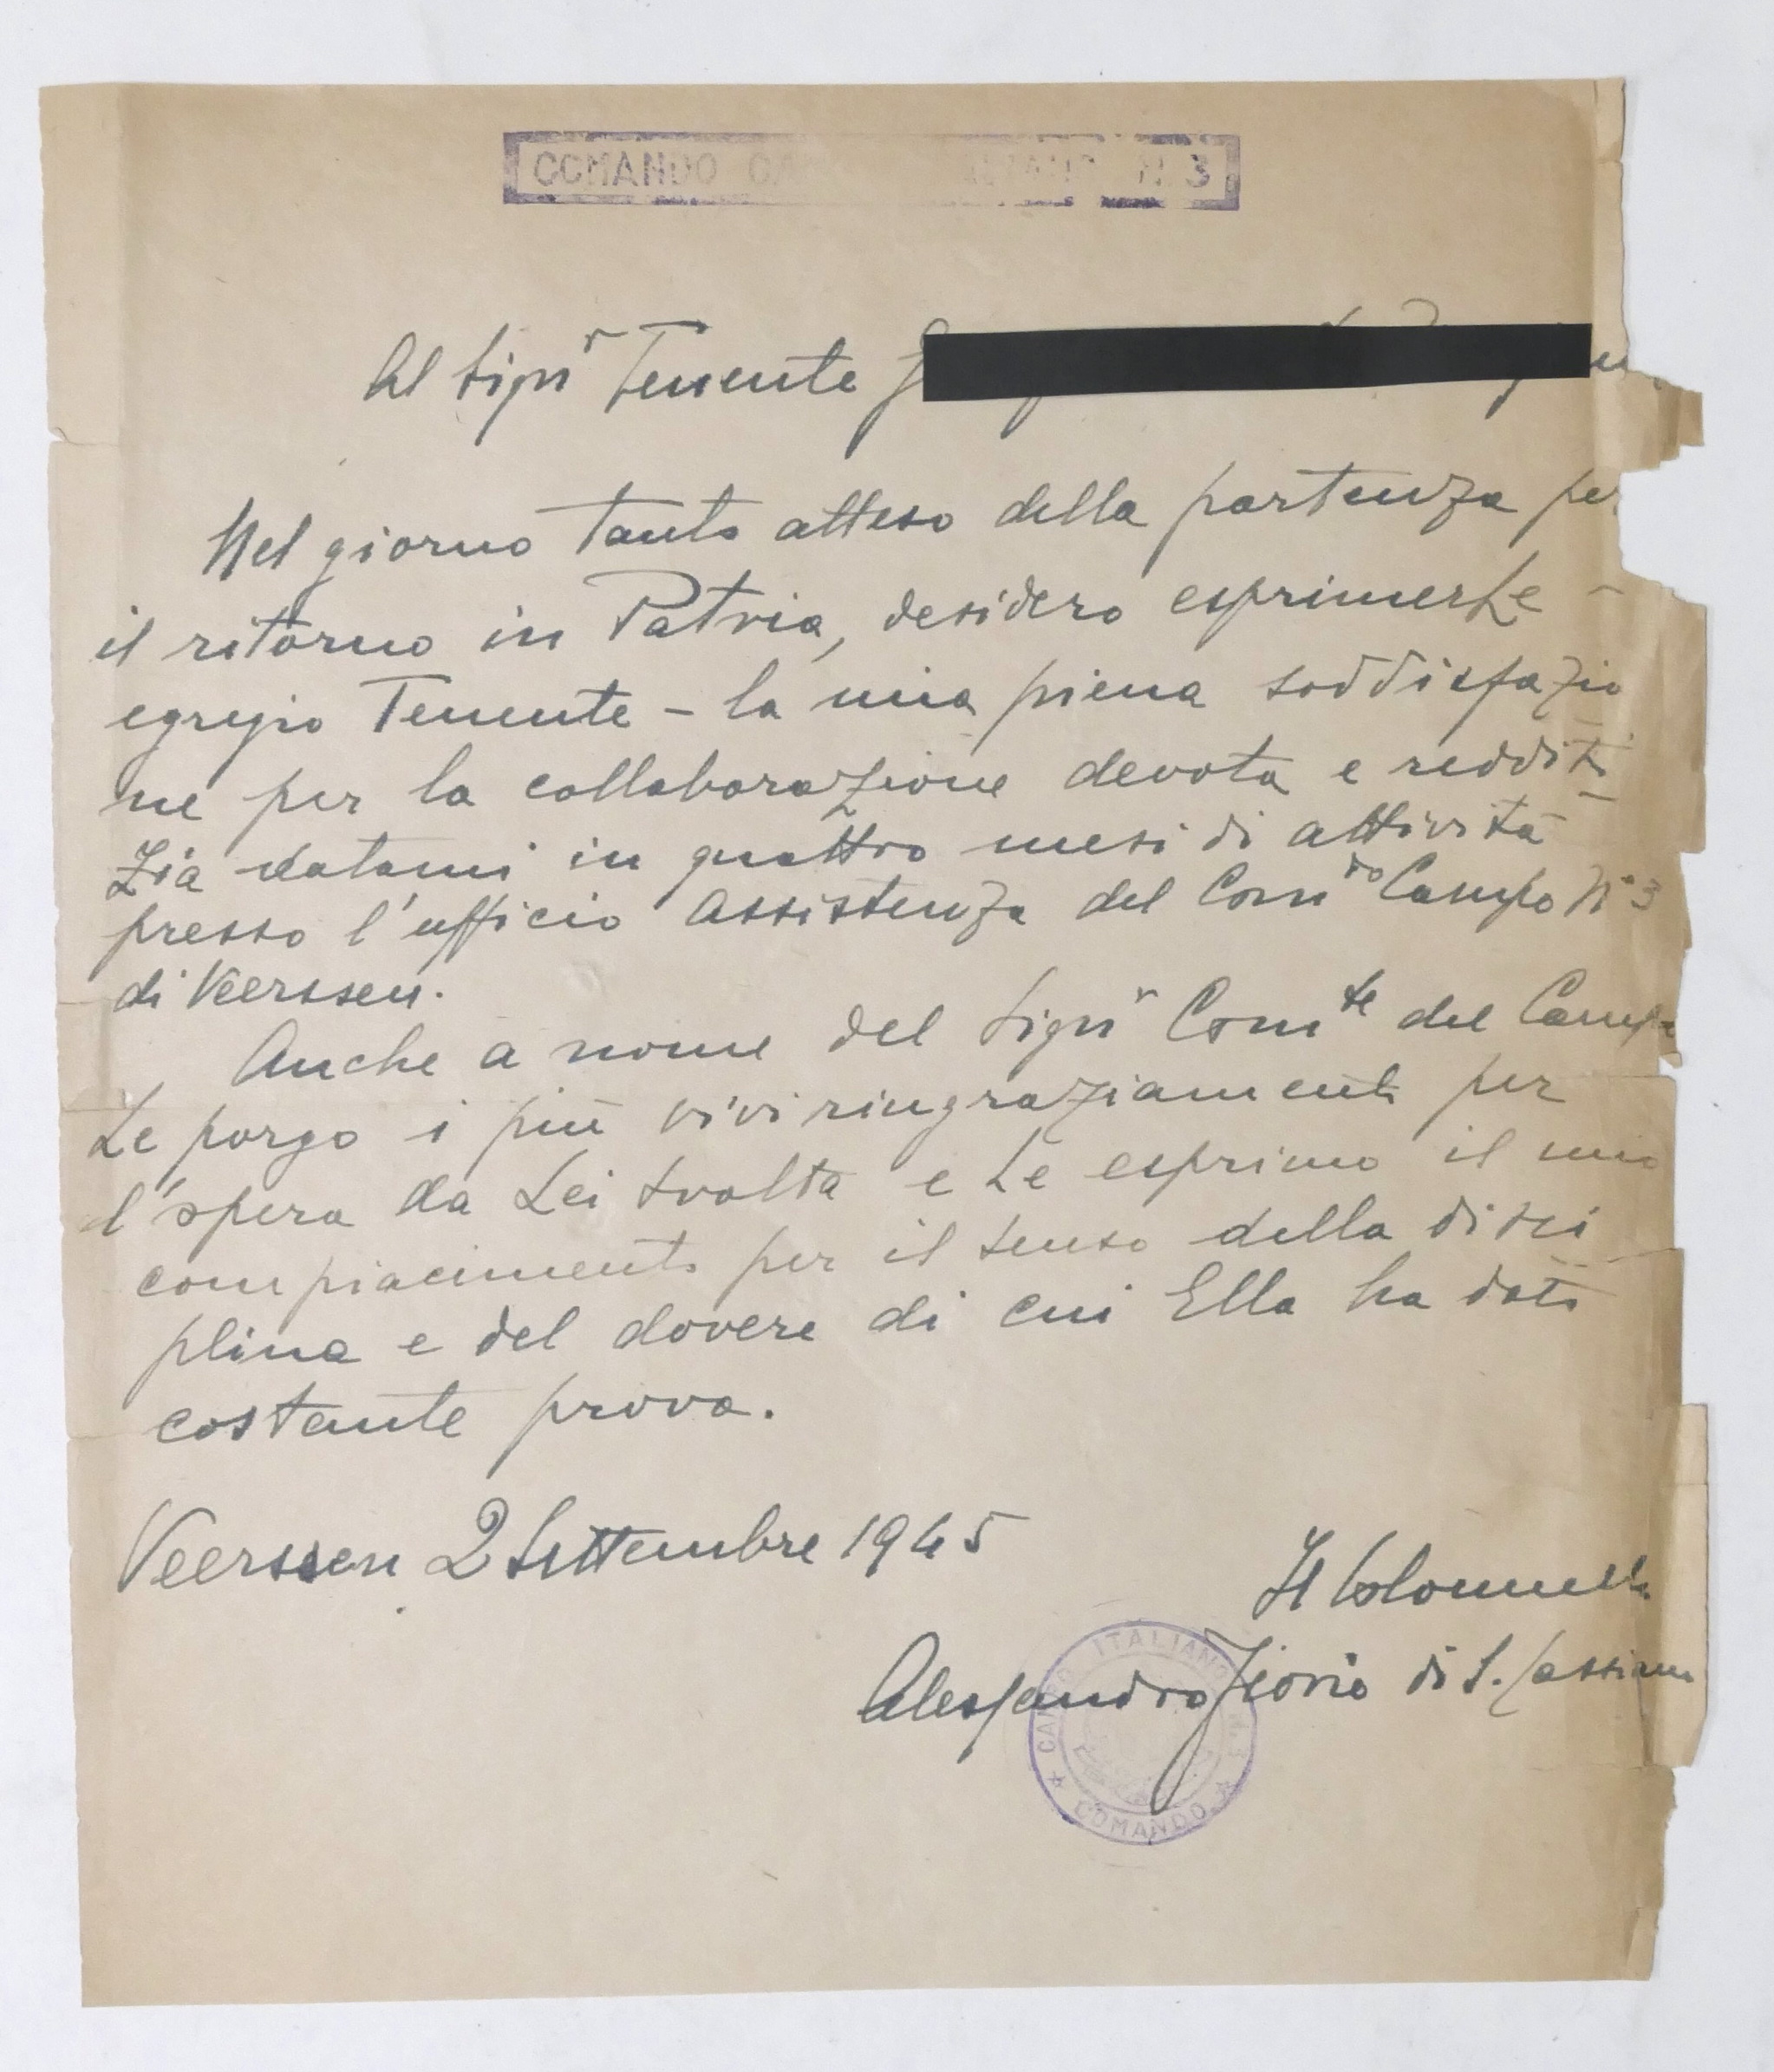 COMANDO N. 3
Al Sigr Tenente
Nel giorno tanto atteso della partenza per
il ritorno in Patria, desidero esprimerLe -
egregio Tenente - la mia piena soddisfazio
ne per la collaborazione devota e redditi-
zia datami in quattro mesi di attività
presso l'ufficio Assistenza del Comdo Campo N° 3
di Veerssen.
Anche a nome del Sigr Comte del Campo
Le porgo i più vivi ringraziamenti per
l'opera da Lei svolta e Le esprimo il mio
compiacimento per il senso della disci
plina e del dovere di cui Ella ha dato
costante prova.
Veerssen 2 Settembre 1945
Il Colonnello
Alessandro di S. Cassiano
CAMPO ITALIANO N. 3
COMANDO